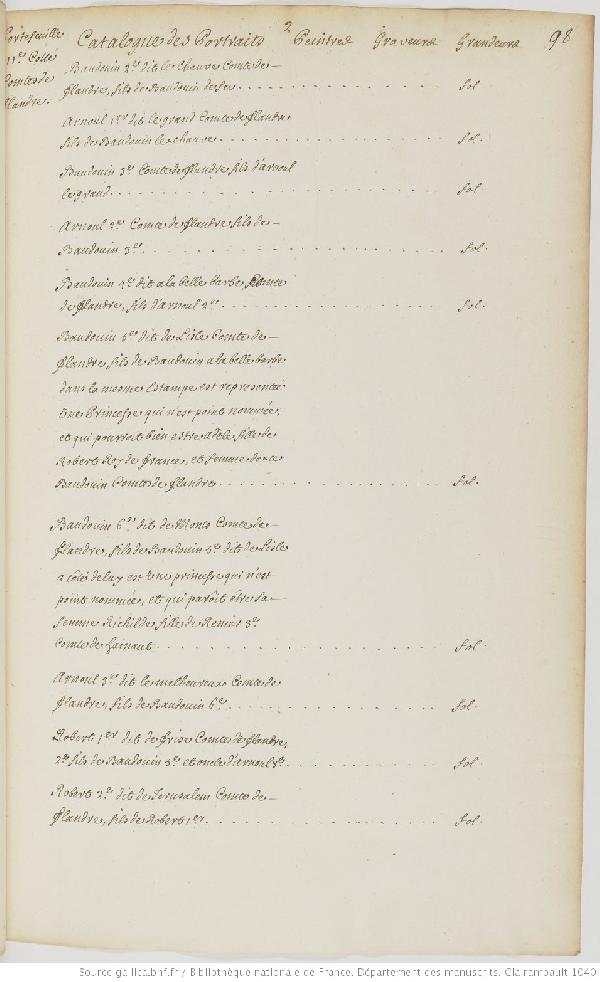 Portefeuille
11er Collé
Comtes de
Flandre.
Catalogue des Portraits 2 Peintres Graveurs Grandeurs 98
Baudouin 2e dit le chauve Comte de
flandre, fils de Baudouin de fer fol.
Arnoul 1er dit le grand Comte de flandre
fils de Baudouin le chauve fol.
Baudouin 3e Comte de flandre fils d'arnoul
le grand fol.
Arnoul 2e Comte de flandre fils de
Baudouin 3e fol.
Baudouin 4e dit a la belle barbe Comte
de flandre, fils d'arnoul 2e fol.
Baudouin 5e dit de Lisle Comte de
flandre, fils de Baudouin a la belle barbe
dans la mesme Estampe est representée
Une Princesse qui n'est point nommée,
et qui pourroit bien estre adele fille de
Robert Roy de france, et femme de ce
Baudouin Comte de flandre fol.
Baudouin 6e dit de Mons Comte de
flandre, fils de Baudouin 5e dit de Lisle
a côté de luy est Une princesse qui n'est
point nommée, et qui paroît être sa
femme Richilde fille de Renier 3e
Comte de hainaut fol.
Arnoul 3e dit le malheureux Comte de
flandre, fils de Baudouin 6e fol.
Robert 1er dit de frise Comte de flandre,
2e fils de Baudouin 5e et oncle d'Arnoul fol.
Robert 2e dit de Jerusalem Comte de
flandre, fils de Robert 1er fol.
Source gallica.bnf.fr / Bibliothèque nationale de France. Département des manuscrits. Clairambault 1040